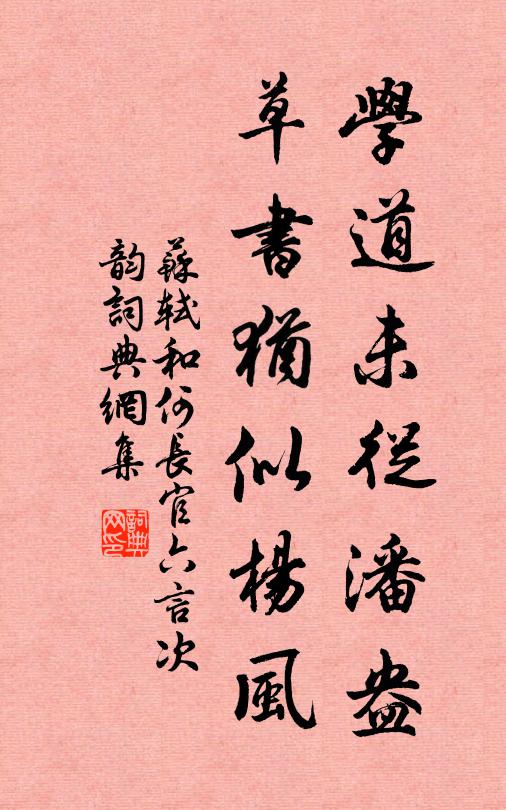 學道未從潘盎
草書猶似楊風
蘇軾和何長官六言次
韵詞典網集
詞典網印